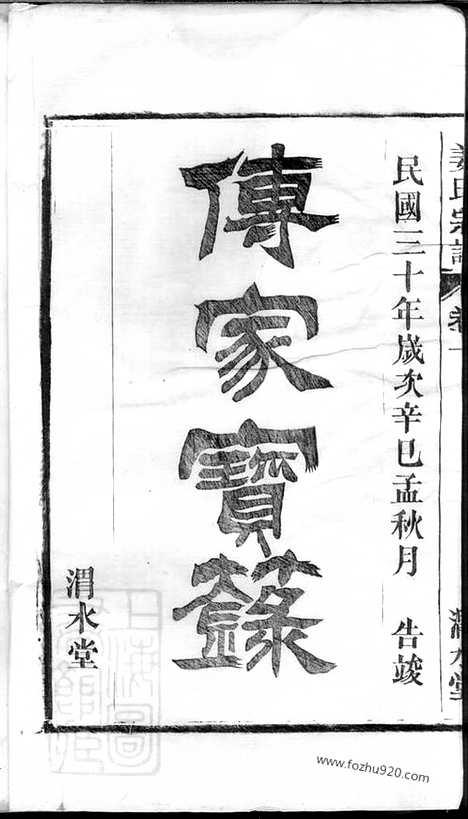 姜氏宗譜
卷一
渭水堂
民國三十年歲次辛巳孟秋月 告竣
傳家寶籙
渭水堂
www.fozhu920.com